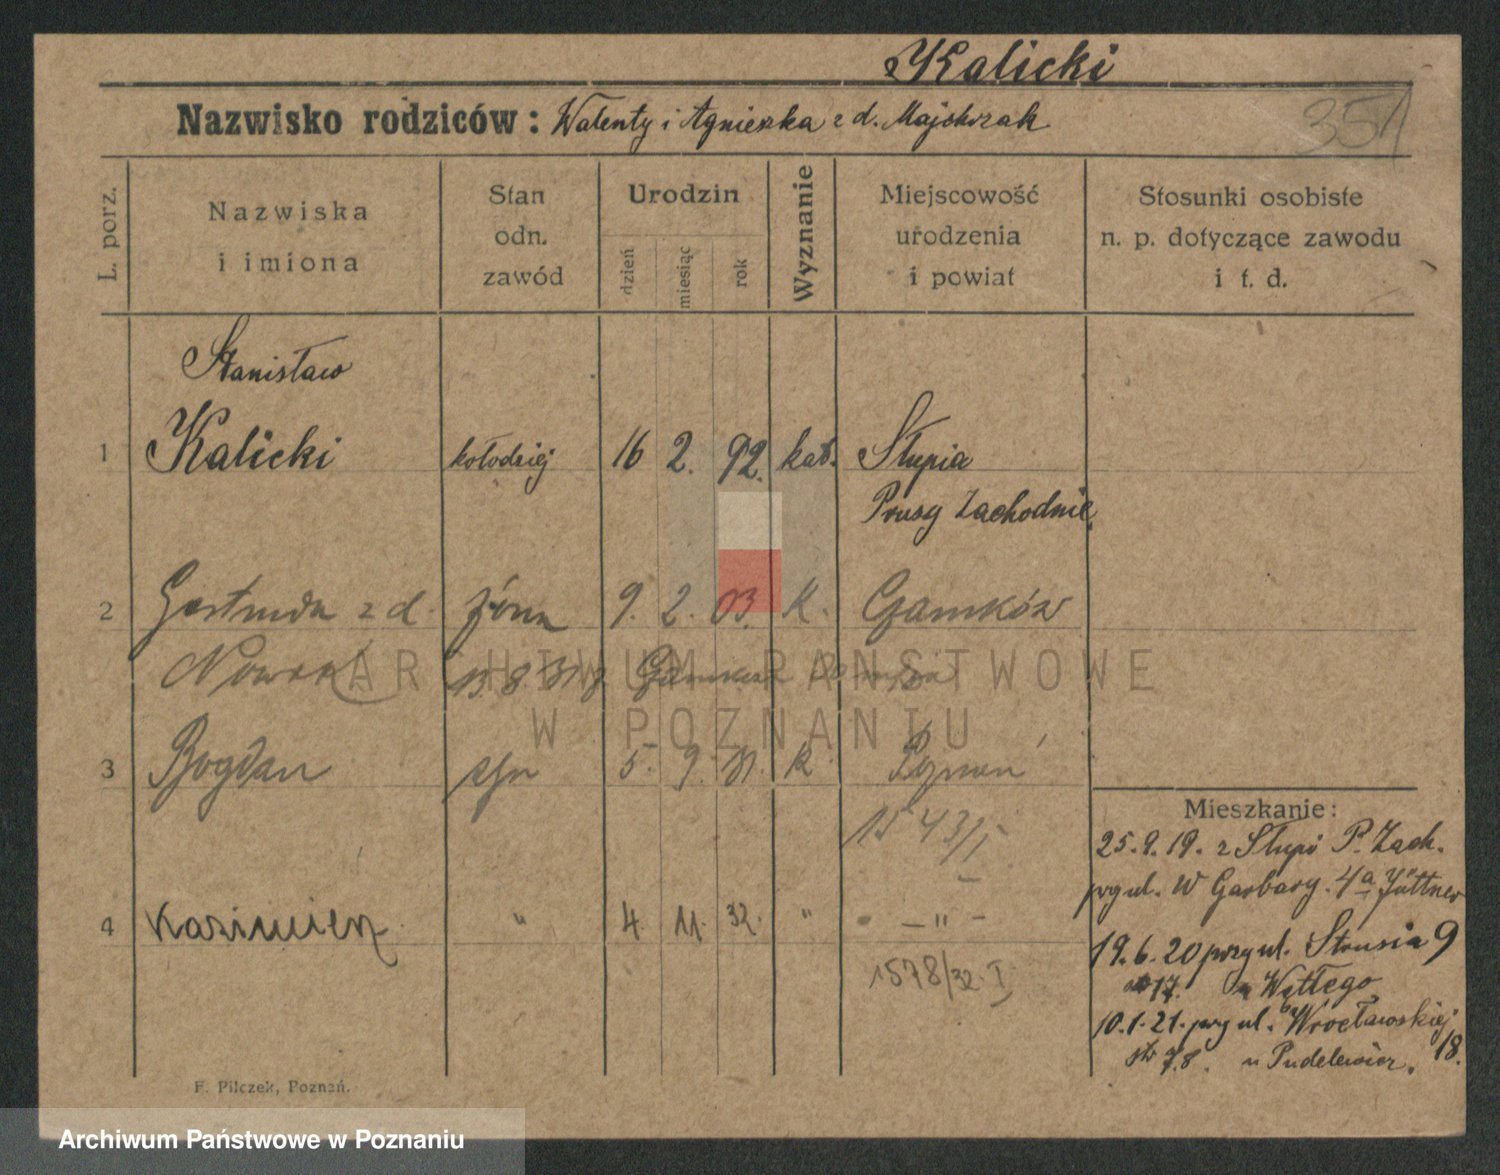 Kalicki
Nazwisko rodziców: Walenty i Agnieszka z d. Majchrzak
351
L. porz.
Nazwiska i imiona
Stan odn. zawód
Urodzin
dzień miesiąc rok
Wyznanie
Miejscowość urodzenia i powiat
Stosunki osobiste n. p. dotyczące zawodu i t. d.
Stanisław
1 Kalicki kołodziej 16 2. 92. kat. Słupia
Prusy Zachodnie
2 Gertruda z d. żona 9. 2. 03. k.
Nowak 13.8.31
ARCHIWUM PAŃSTWOWE
W POZNANIU
3 Bogdan syn 5. 9. 31. k. Poznań
1543/
4 Kazimierz " 4 11. 32. " - " -
1578/32. I
Mieszkanie:
25.9.19. z Słupi P. Zach.
przy ul. W Garbary. 4a Jüttner
19.6.20 przy ul. Strusia 9
17. u Wątłego
10.1.21. przy ul. Wrocławskiej 18.
str 7.8. u Pudelewicz.
F. Pilczek, Poznań.
Archiwum Państwowe w Poznaniu